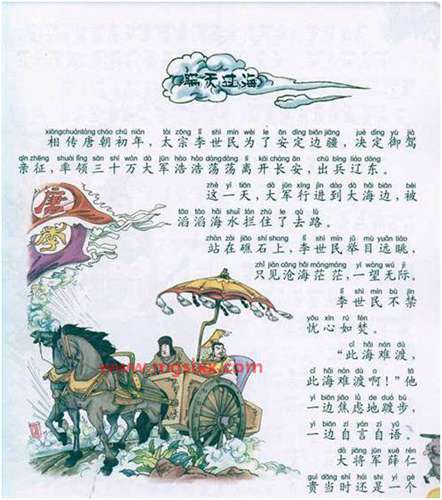 瞒天过海
xiāngchuántáng cháo chū nián tài zōng lǐ shì mín wèi le ān dìng biān jiāng jué dìng yù jià
相传唐朝初年，太宗李世民为了安定边疆，决定御驾
qīn zhēng shuài lǐng sān shí wàn dà jūn hào hào dàng dàng lí kāi cháng ān chū bīng liáo dōng
亲征，率领三十万大军浩浩荡荡离开长安，出兵辽东。
zhè yì tiān dà jūn xíng jìn dào dà hǎi biān bèi
这一天，大军行进到大海边，被
tāo tāo hǎi shuǐ lán zhù le qù lù
滔滔海水拦住了去路。
zhàn zài jiāo shí shàng lǐ shì mín jǔ mù yuǎn tiào
站在礁石上，李世民举目远眺，
zhǐ jiàn cāng hǎi mángmáng yí wàng wú jì
只见沧海茫茫，一望无际。
lǐ shì mín bù jīn
李世民不禁
yōu xīn rú fén
忧心如焚。
cǐ hǎi nán dù
“此海难渡，
cǐ hǎi nán dù a tā
此海难渡啊！”他
yì biān jiāo lǜ de duó bù
一边焦虑地踱步，
yì biān zì yán zì yǔ
一边自言自语。
dà jiāng jūn xuē rén
大将军薛仁
guì dāng shí hái shì yí gè
贵当时还是一个
唐
李